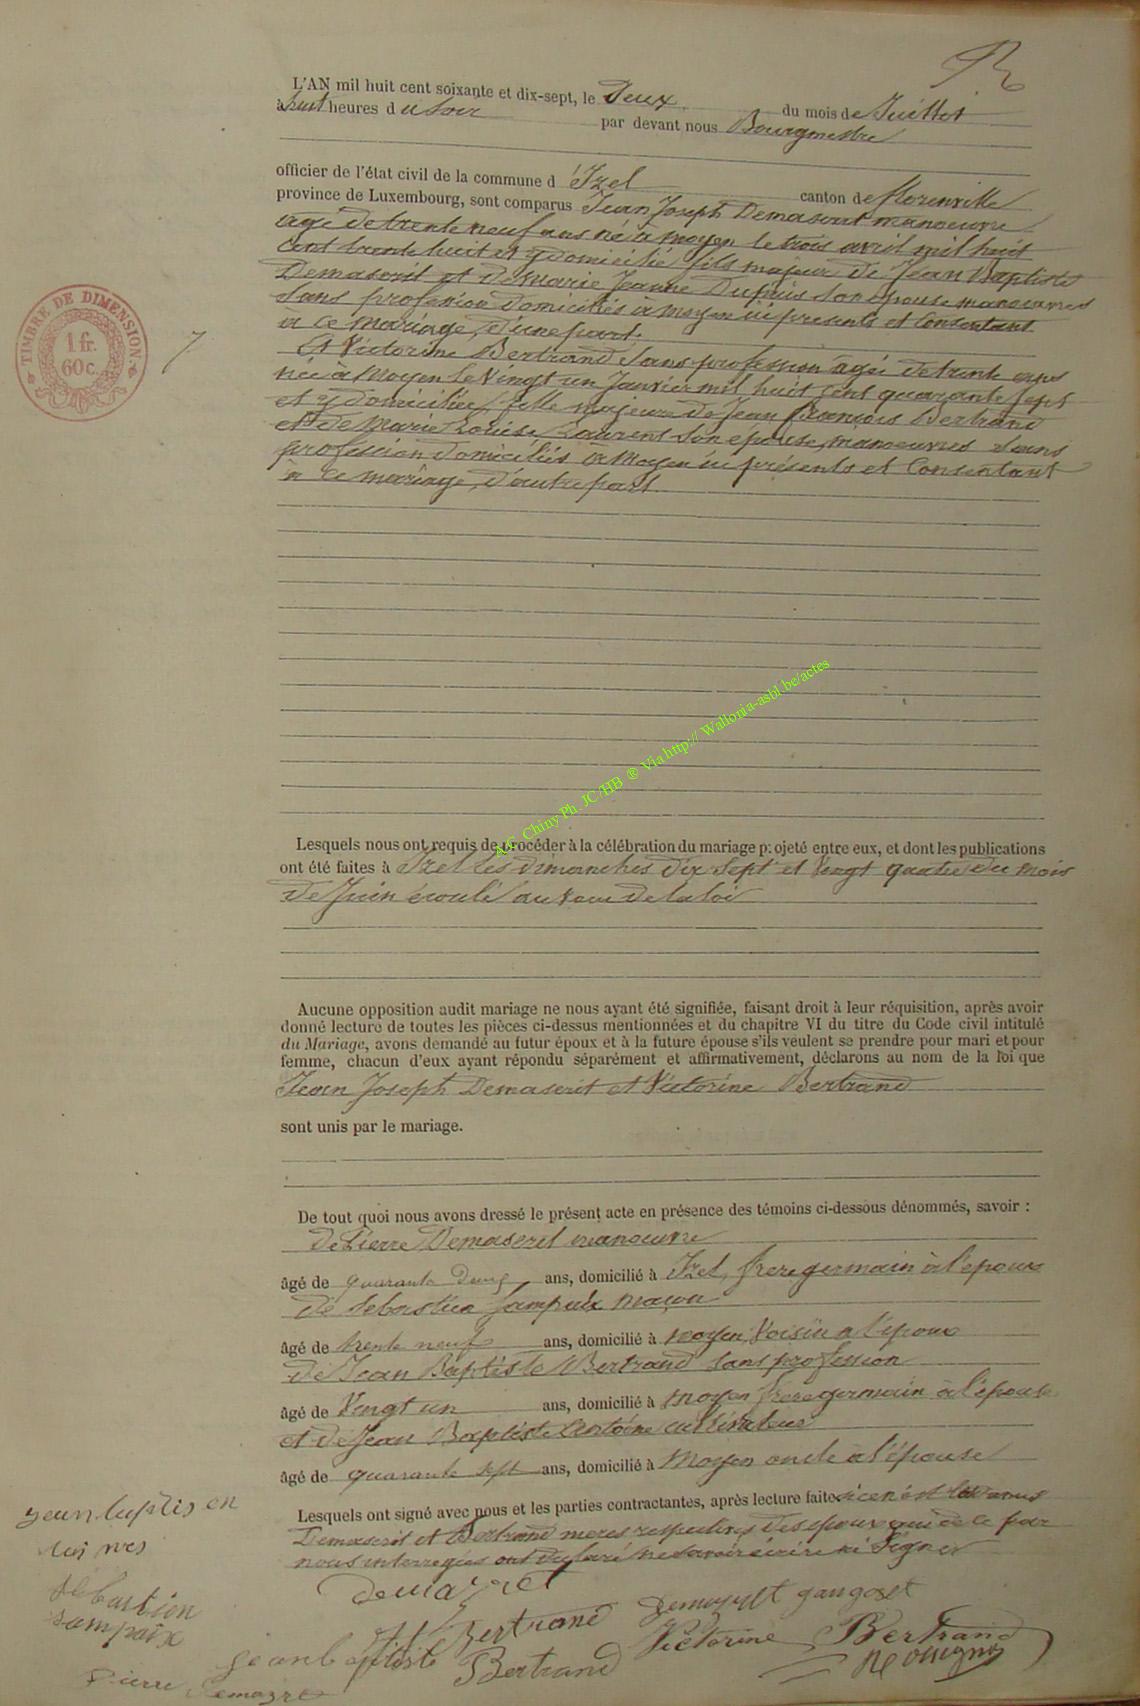 L'AN mil huit cent soixante et dix-sept, le Deux du mois de Juillet
à huit heures du Soir par devant nous Bourgmestre
officier de l'état civil de la commune d'Izel canton de florenville
province de Luxembourg, sont comparus Jean Joseph Demaseret manoeuvre
agé de trente neuf ans né à moyen le trois avril mil huit
cent trente huit et y domicilié, fils majeur de Jean Baptiste
Demaserit et de Marie Jeanne Dupuis son épouse manoeuvres
sans profession domiciliés à moyen ici présents et Consentant
à ce mariage, d'une part,
Et Victorine Bertrand sans profession agée de trente ans
née à Moyen le Vingt un Janvier mil huit Cent quarante sept
et y domiciliée, fille majeure de Jean François Bertrand
et de Marie Louise Laurent son épouse, manoeuvres sans
profession domiciliés à Moyen ici présents et Consentant
à ce mariage, d'autre part
TIMBRE DE DIMENSION
1 fr.
60 c.
7
A.G. Chiny Ph. JC/HB ® Via http:// Wallonia-asbl.be/actes
Lesquels nous ont requis de procéder à la célébration du mariage projeté entre eux, et dont les publications
ont été faites à Izel les dimanches dix sept et Vingt quatre du mois
de Juin écoulé au voeu de la loi
Aucune opposition audit mariage ne nous ayant été signifiée, faisant droit à leur réquisition, après avoir
donné lecture de toutes les pièces ci-dessus mentionnées et du chapitre VI du titre du Code civil intitulé
du Mariage, avons demandé au futur époux et à la future épouse s'ils veulent se prendre pour mari et pour
femme, chacun d'eux ayant répondu séparément et affirmativement, déclarons au nom de la loi que
Jean Joseph Demaserit et Victorine Bertrand
sont unis par le mariage.
De tout quoi nous avons dressé le présent acte en présence des témoins ci-dessous dénommés, savoir :
de Pierre Demaseret manoeuvre
âgé de quarante deux ans, domicilié à Izel, frere germain à l'époux
de Sebastien Sampaix maçon
âgé de trente neuf ans, domicilié à moyen Voisin a l'époux
de Jean Baptiste Bertrand sans profession
âgé de Vingt un ans, domicilié à moyen frere germain à l'épouse
et de Jean Baptiste Antoine cultivateur
âgé de quarante sept ans, domicilié à Moyen oncle à l'épouse
Lesquels ont signé avec nous et les parties contractantes, après lecture faite si ce n'est les
Demaserit et Bertrand meres respectives des époux qui de ce par
nous interregées ont déclaré ne savoir écrire ni signer
jean baptis en
toi nes
sébastien
sampaix
Pierre Demazre
Demazret
Bertrand
jean baptiste Bertrand
Victorine Bertrand